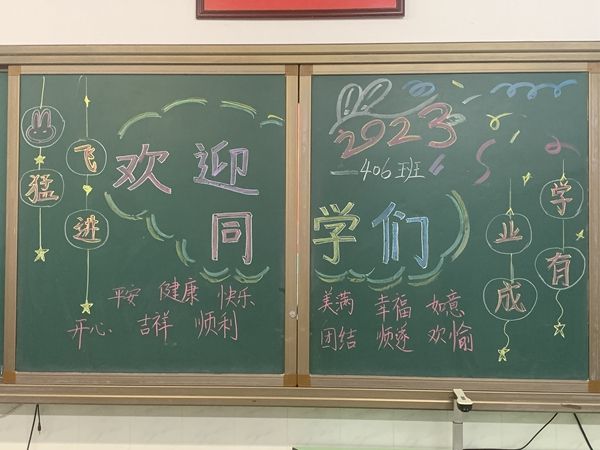 飞猛进
欢迎
同学们
2023
406班
学业有成
平安 健康 快乐
开心 吉祥 顺利
美满 幸福 如意
团结 顺遂 欢愉